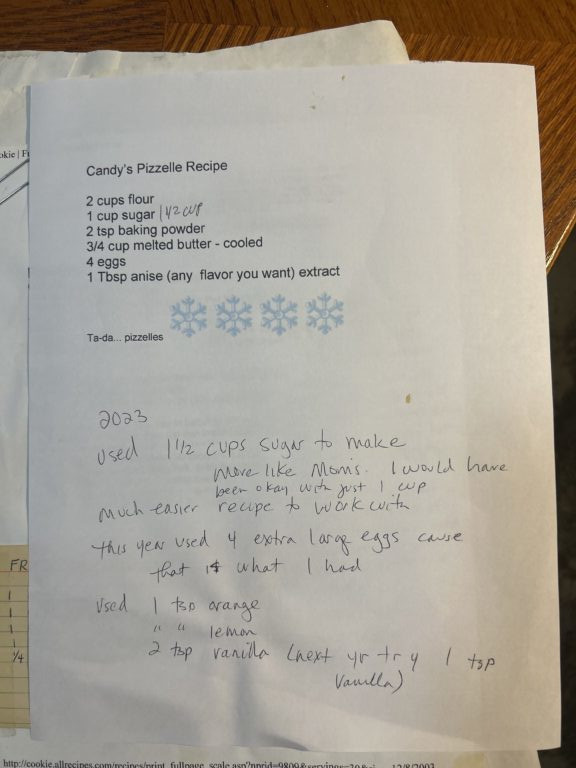 Candy's Pizzelle Recipe
2 cups flour
1 cup sugar 1 1/2 cup
2 tsp baking powder
3/4 cup melted butter - cooled
4 eggs
1 Tbsp anise (any flavor you want) extract
Ta-da... pizzelles
2023
used 1 1/2 cups sugar to make
more like Mom's. I would have
been okay with just 1 cup
Much easier recipe to work with
this year used 4 extra large eggs cause
that is what I had
Used 1 tsp orange
" " lemon
2 tsp vanilla (next yr try 1 tsp
vanilla)
okie | Fr
FR
1
1
1
1
1/4
http://cookie.allrecipes.com/recipes/print_fullpage_scale.asp?nprid=9809&servings=30& 12/8/2003